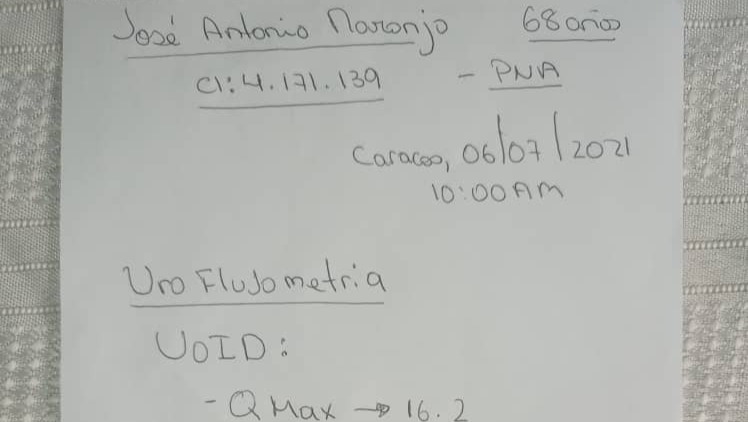 José Antonio Naranjo 68 años
CI: 4.171.139 - PNA
Caracas, 06/07/2021
10:00 AM
Uro Flujometria
VOID:
- Q Max → 16.2